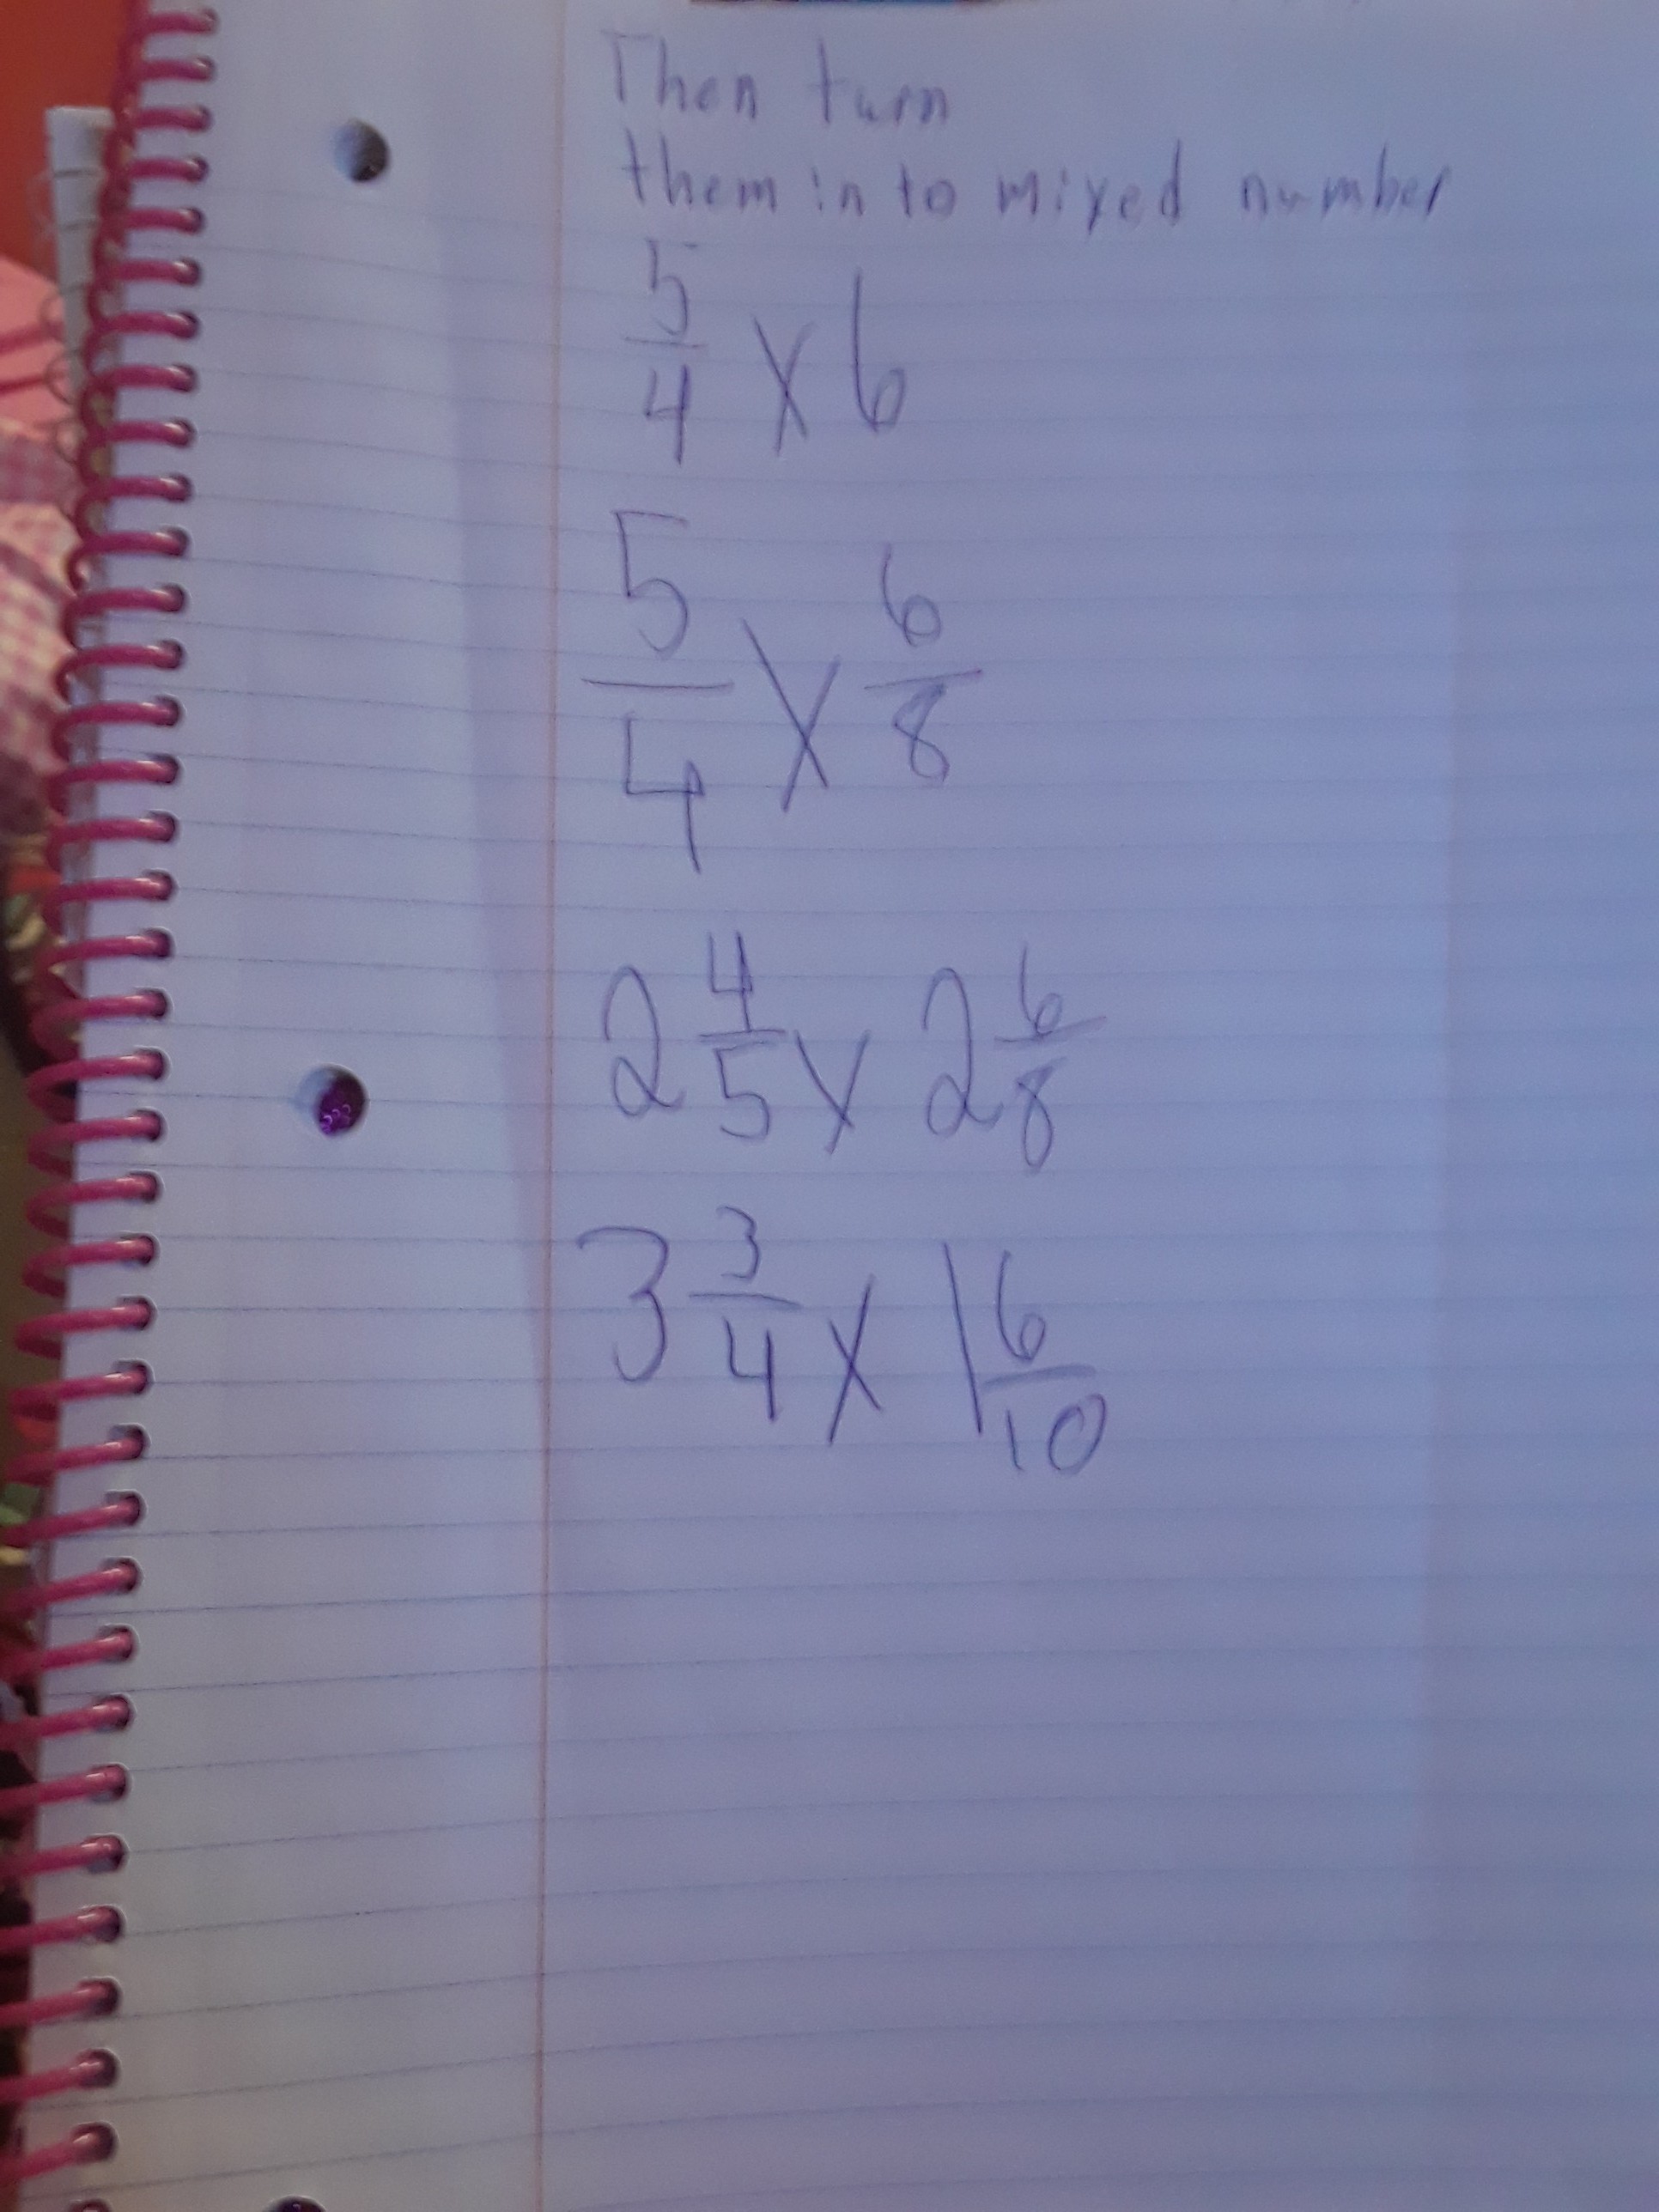 Then turn
them in to mixed number
5/4 x 6
5/4 x 6/8
2 4/5 x 2 6/8
3 3/4 x 1 6/10